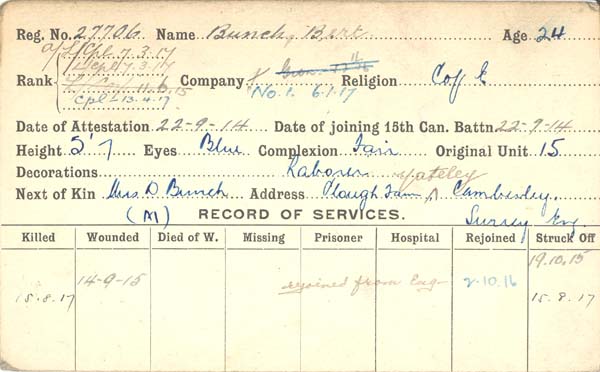 Reg. No. 27706 Name Bunch, Bert Age 24
A/L/Cpl. 7.3.17
L/Cpl 7.3.17
Rank Company Religion C of E
11.6.15 No. 1. 6.1.17
Cpl 13.4.17
Date of Attestation 22-9-14 Date of joining 15th Can. Battn 22-9-14
Height 5'7 Eyes Blue Complexion Fair Original Unit 15
Decorations Laborer Yateley
Next of Kin Mrs. D Bunch Address Plough Farm Camberley,
(M) RECORD OF SERVICES. Surrey Eng
Killed Wounded Died of W. Missing Prisoner Hospital Rejoined Struck Off
19.10.15
14-9-15 rejoined from Eng- 2.10.16
15.8.17 15.8.17